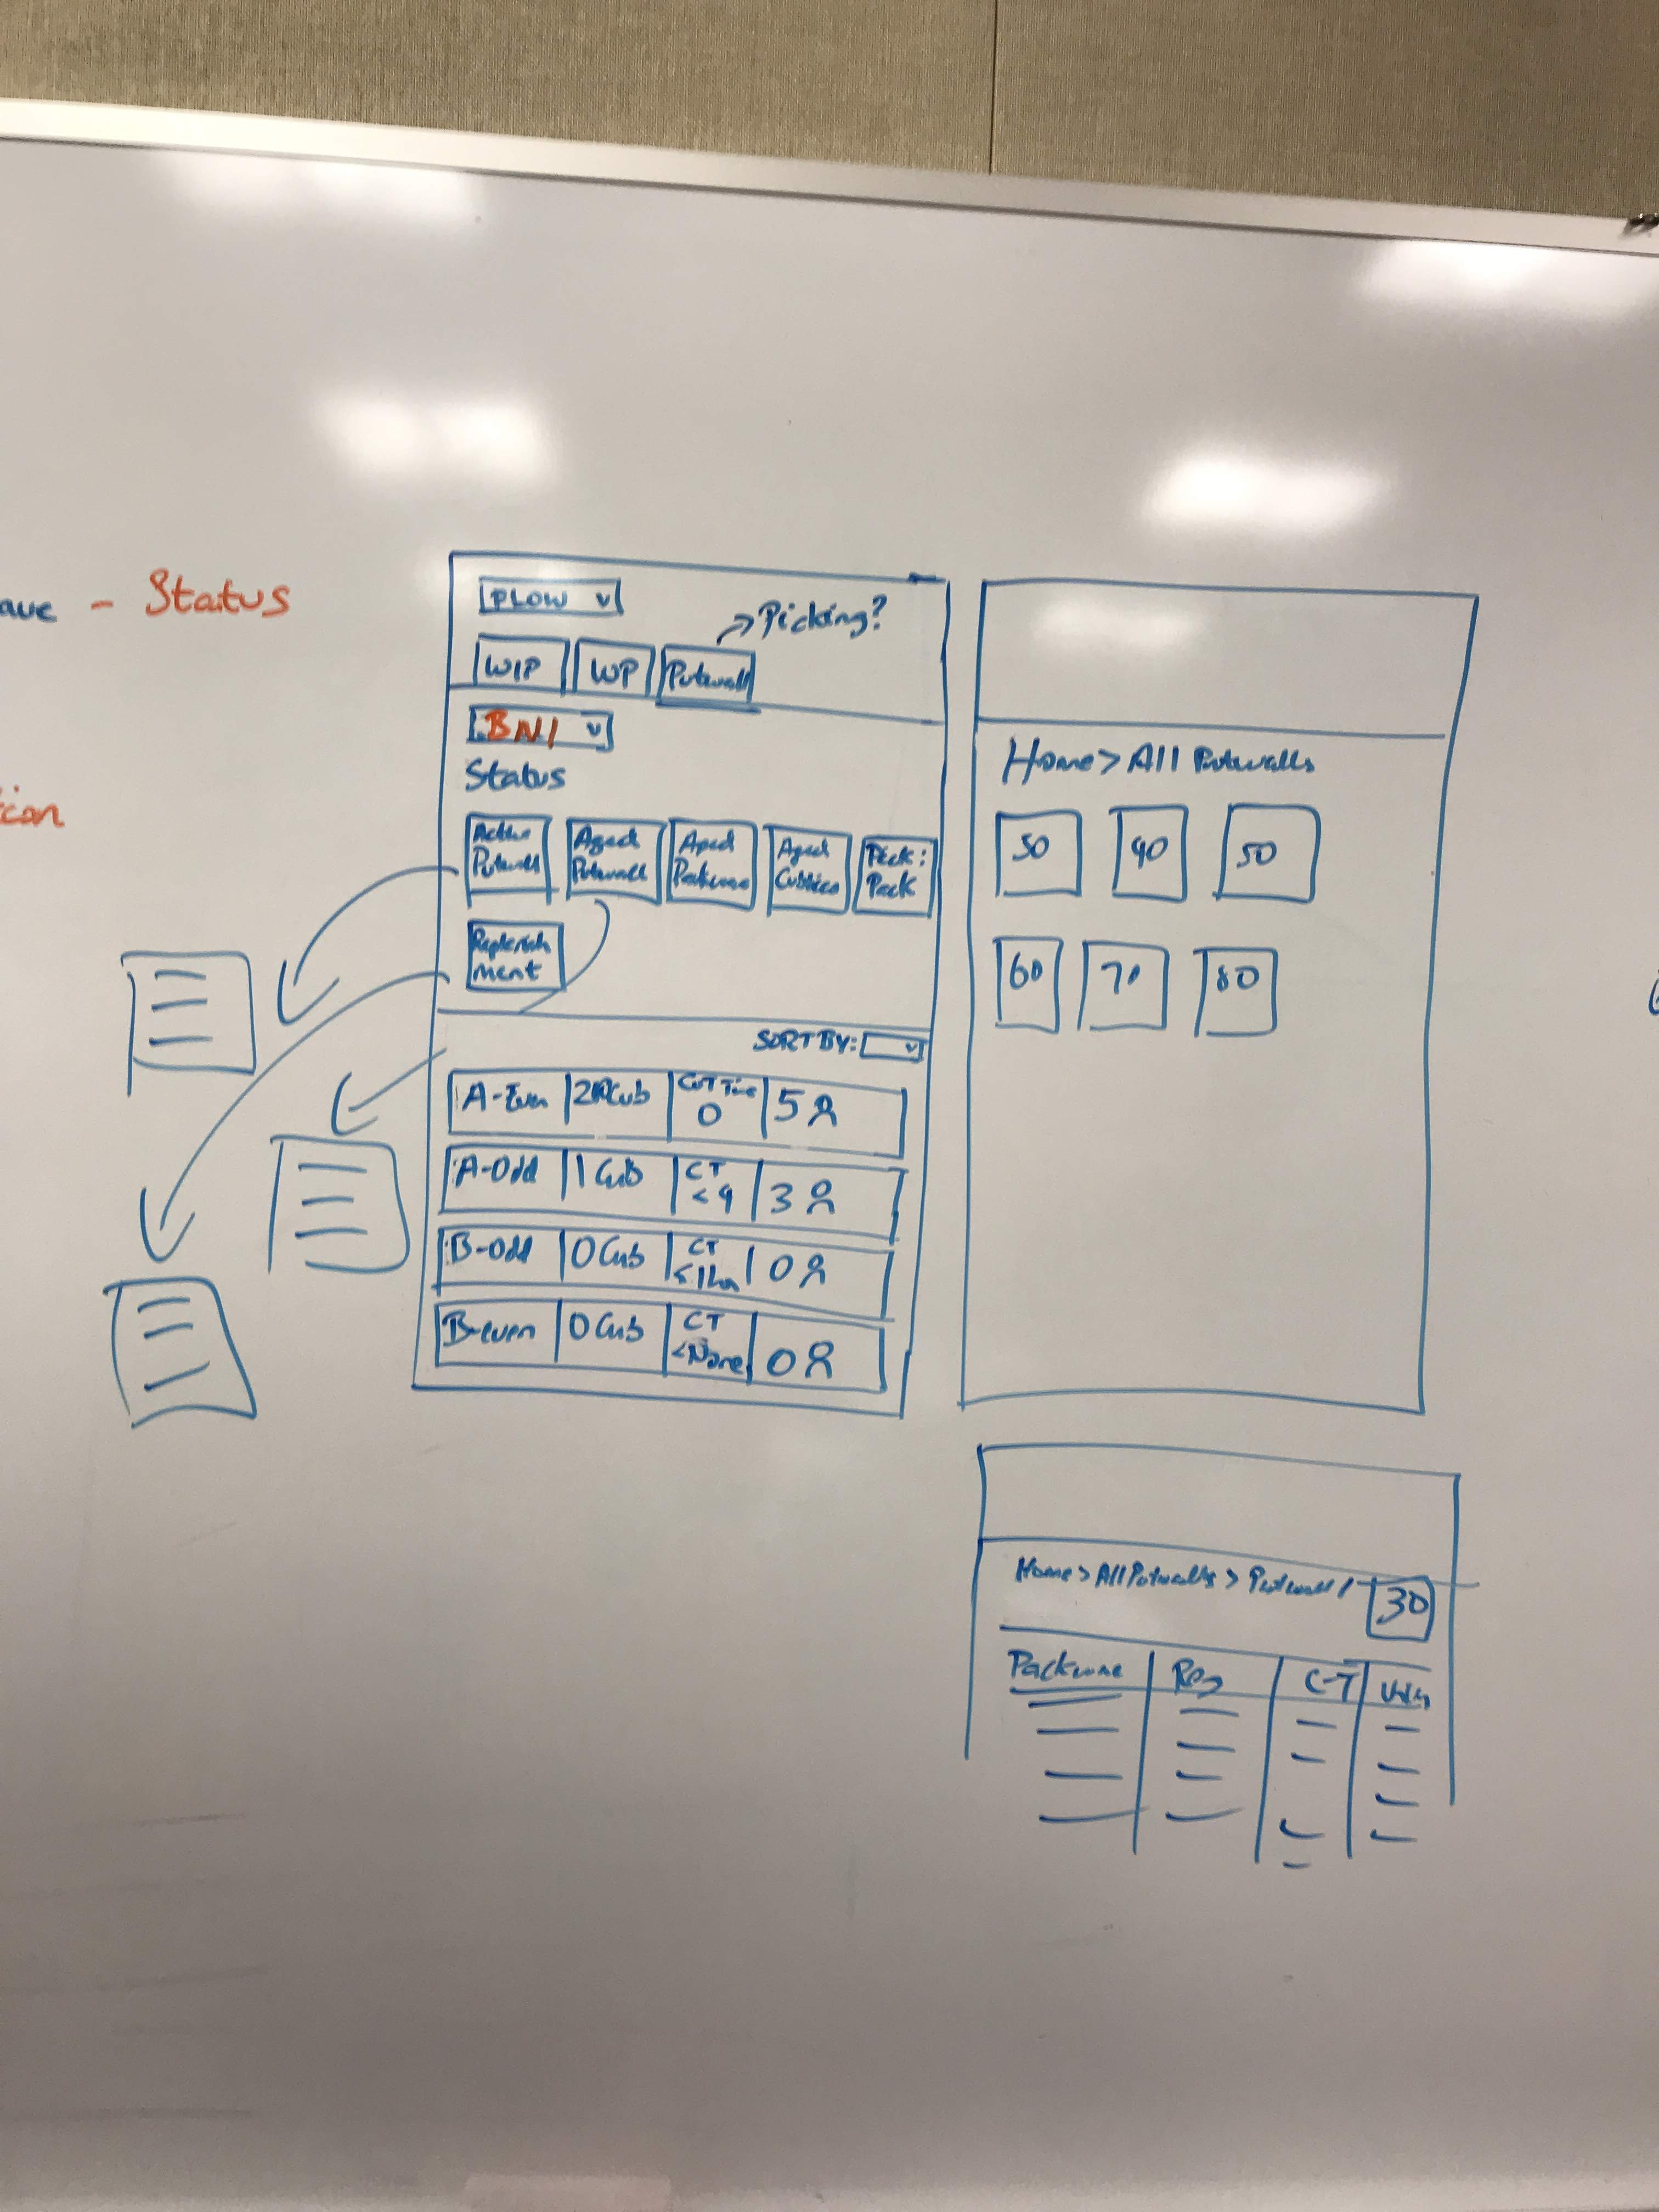 ave - Status
tion
PLOW v
→ Picking?
WIP WP Putwall
BNI v
Status
Active Putwalls
Aged Putwall
Aged
Aged Cubbies
Pick: Pack
Replenish ment
SORT BY: v
A-Even Cub Cut Time 0 5
A-Odd 1 Cub CT <4 3
B-Odd 0 Cub CT <1hr 0
B-even 0 Cub CT <None 0
Home > All Putwalls
50 40 50
60 70 80
Home > All Putwalls > Putwall 1 30
C-T